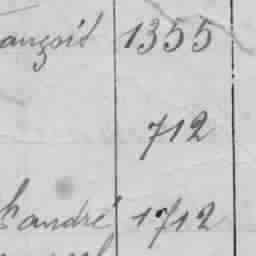 ançois 1355
712
André 1712